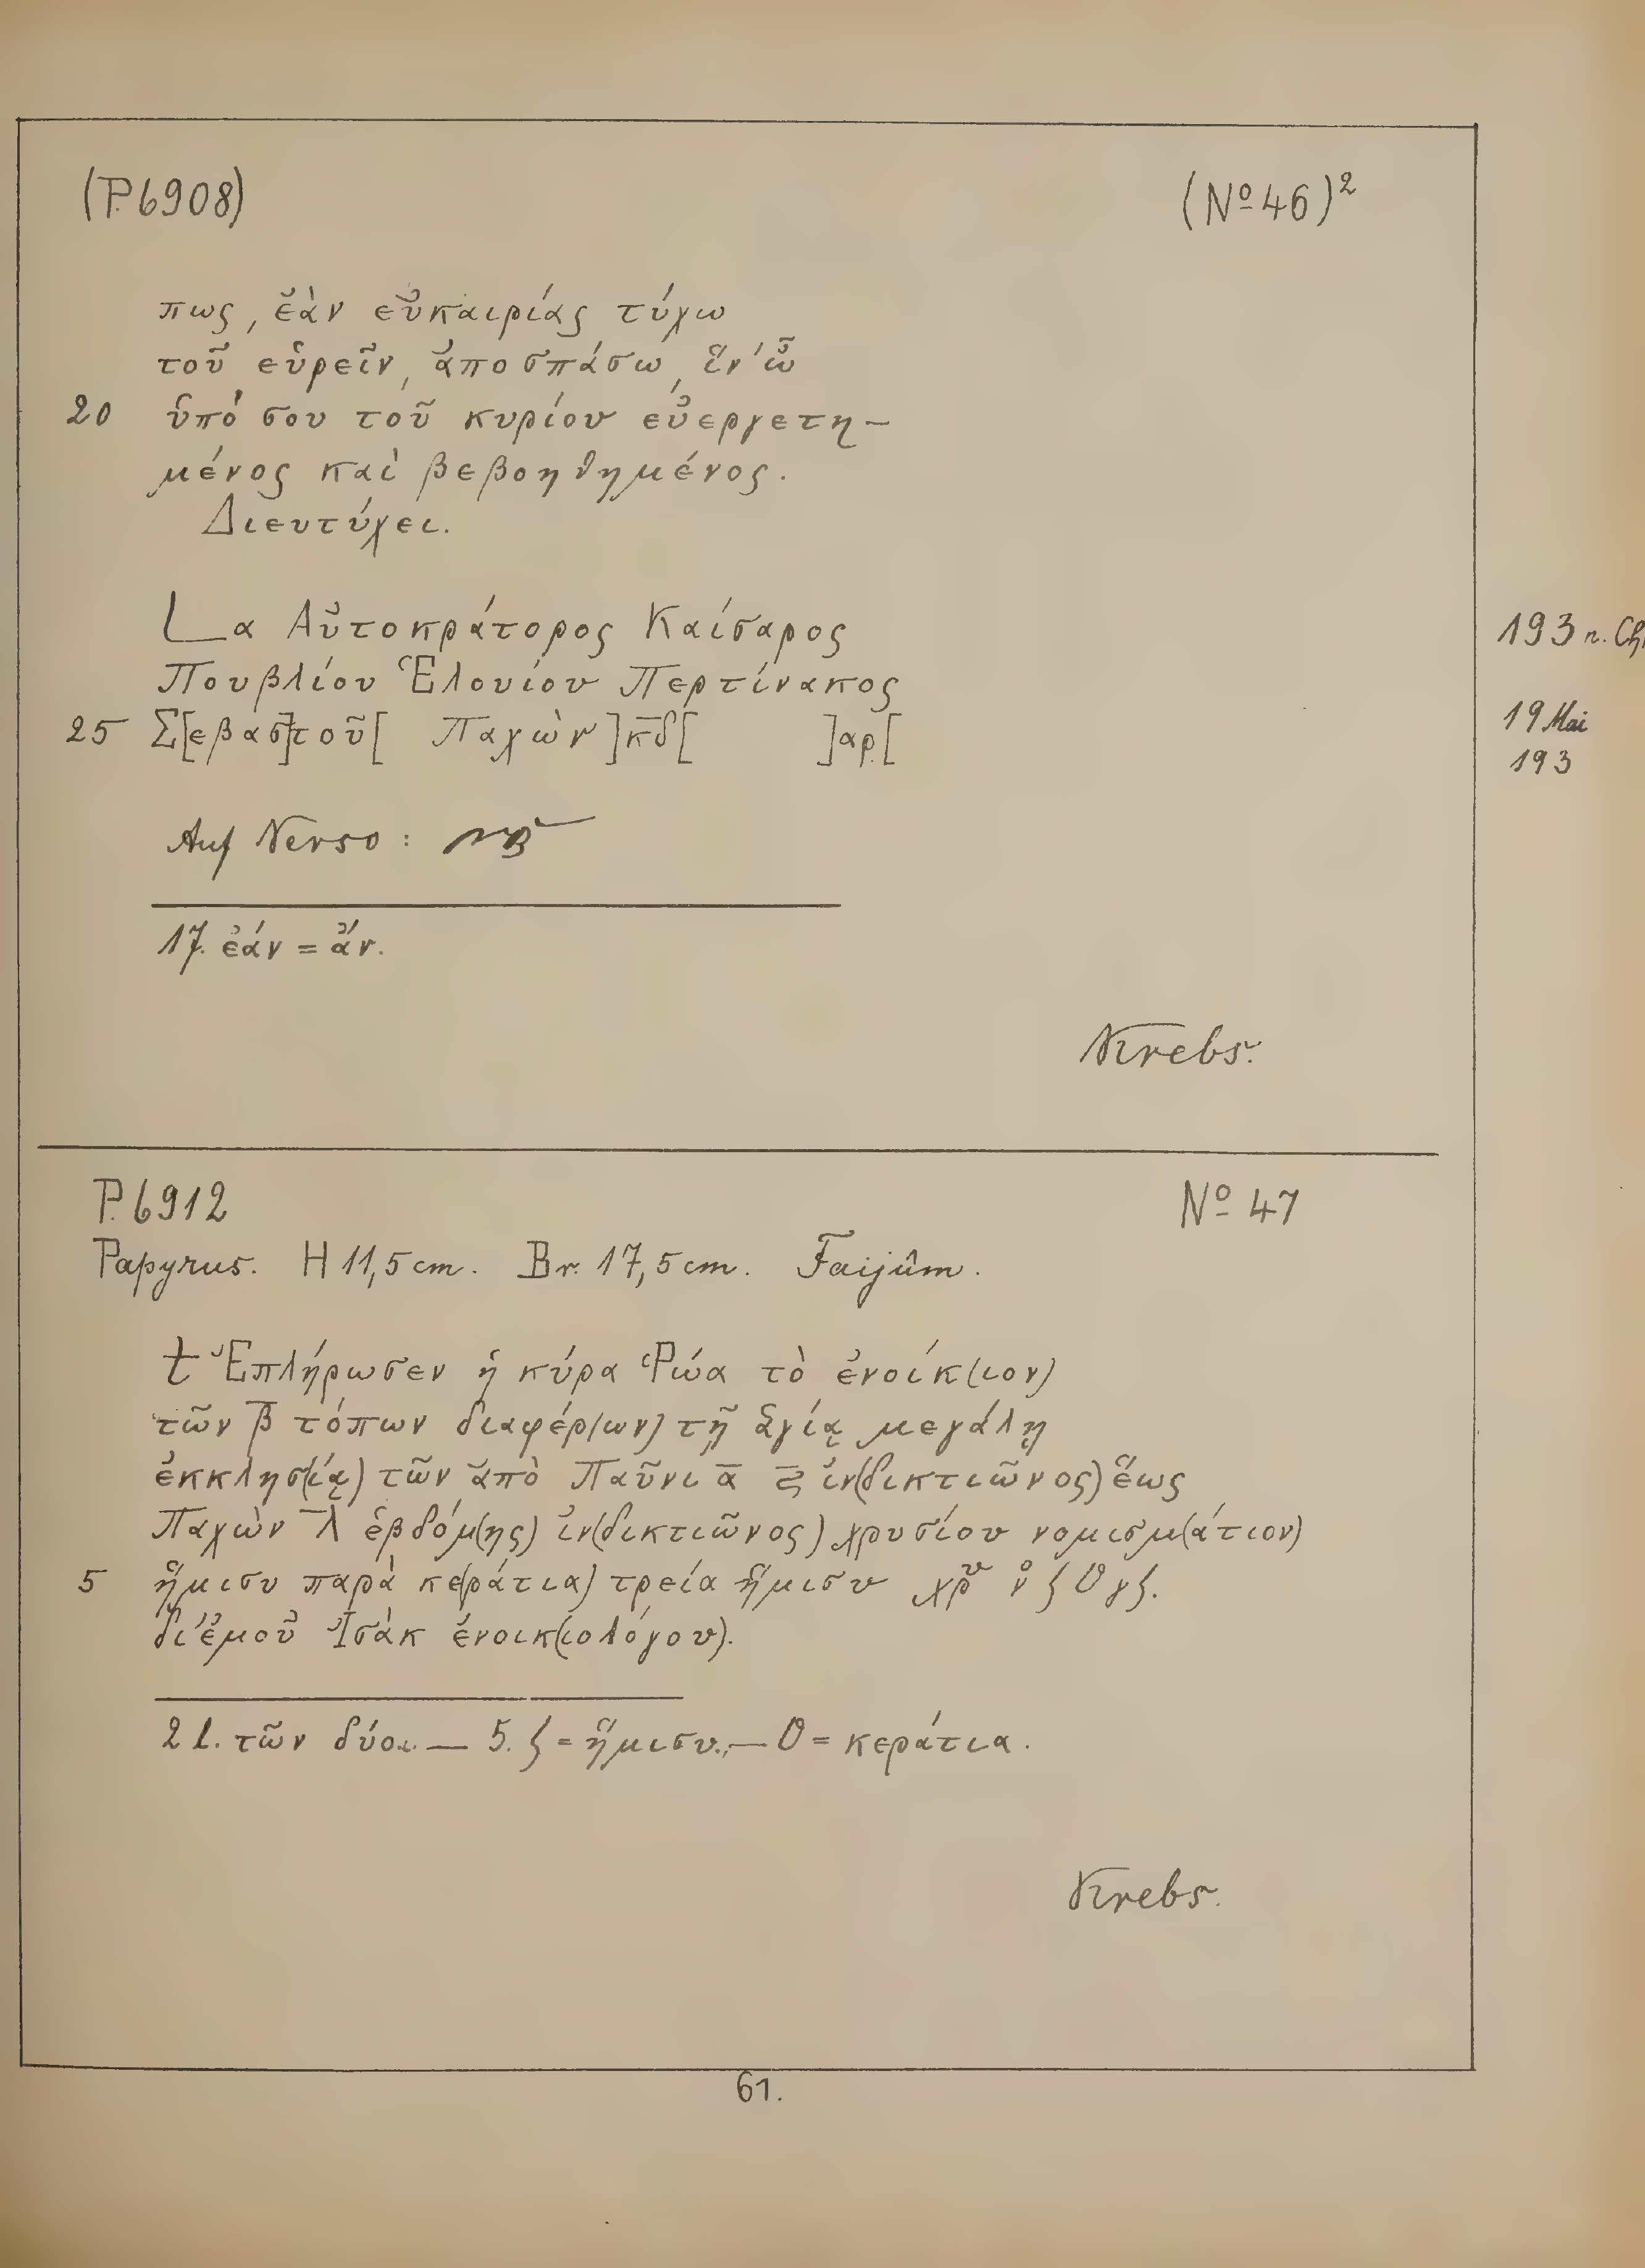 (P. 6908) (Nº 46)²
πως, ἐὰν εὐκαιρίας τύχω
τοῦ εὑρεῖν, ἀποσπάσω, ἵν' ὦ
20 ὑπό σου τοῦ κυρίου εὐεργετη-
μένος καὶ βεβοηθημένος.
Διευτύχει.
L α Αὐτοκράτορος Καίσαρος 193 n. Chr
Πουβλίου Ἑλουίου Περτίνακος
25 Σ[εβασ]τοῦ[ Παχὼν ]κ̅δ̅[ ]αρ.[ 19 Mai
193
Auf Verso:
17. ἐάν = ἄν.
Krebs.
P. 6912 Nº 47
Papyrus. H 11,5 cm. Br. 17,5 cm. Faijûm.
† Ἐπλήρωσεν ἡ κύρα Ῥώα τὸ ἐνοίκ(ιον)
τῶν β̅ τόπων διαφέρ(ων) τῇ ἁγίᾳ μεγάλῃ
ἐκκλησ(ίᾳ) τῶν ἀπὸ Παῦνι α̅ ϛ̅ ἰν(δικτιῶνος) ἕως
Παχὼν λ̅ ἑβδόμ(ης) ἰν(δικτιῶνος) χρυσίου νομισμ(άτιον)
5 ἥμισυ παρὰ κε(ράτια) τρεία ἥμισυ χρυ νο ʃ θ γʃ.
δι' ἐμοῦ Ἰσὰκ ἐνοικ(ιολόγου).
2 l. τῶν δύο. — 5. ʃ = ἥμισυ. — θ = κεράτια.
Krebs.
61.